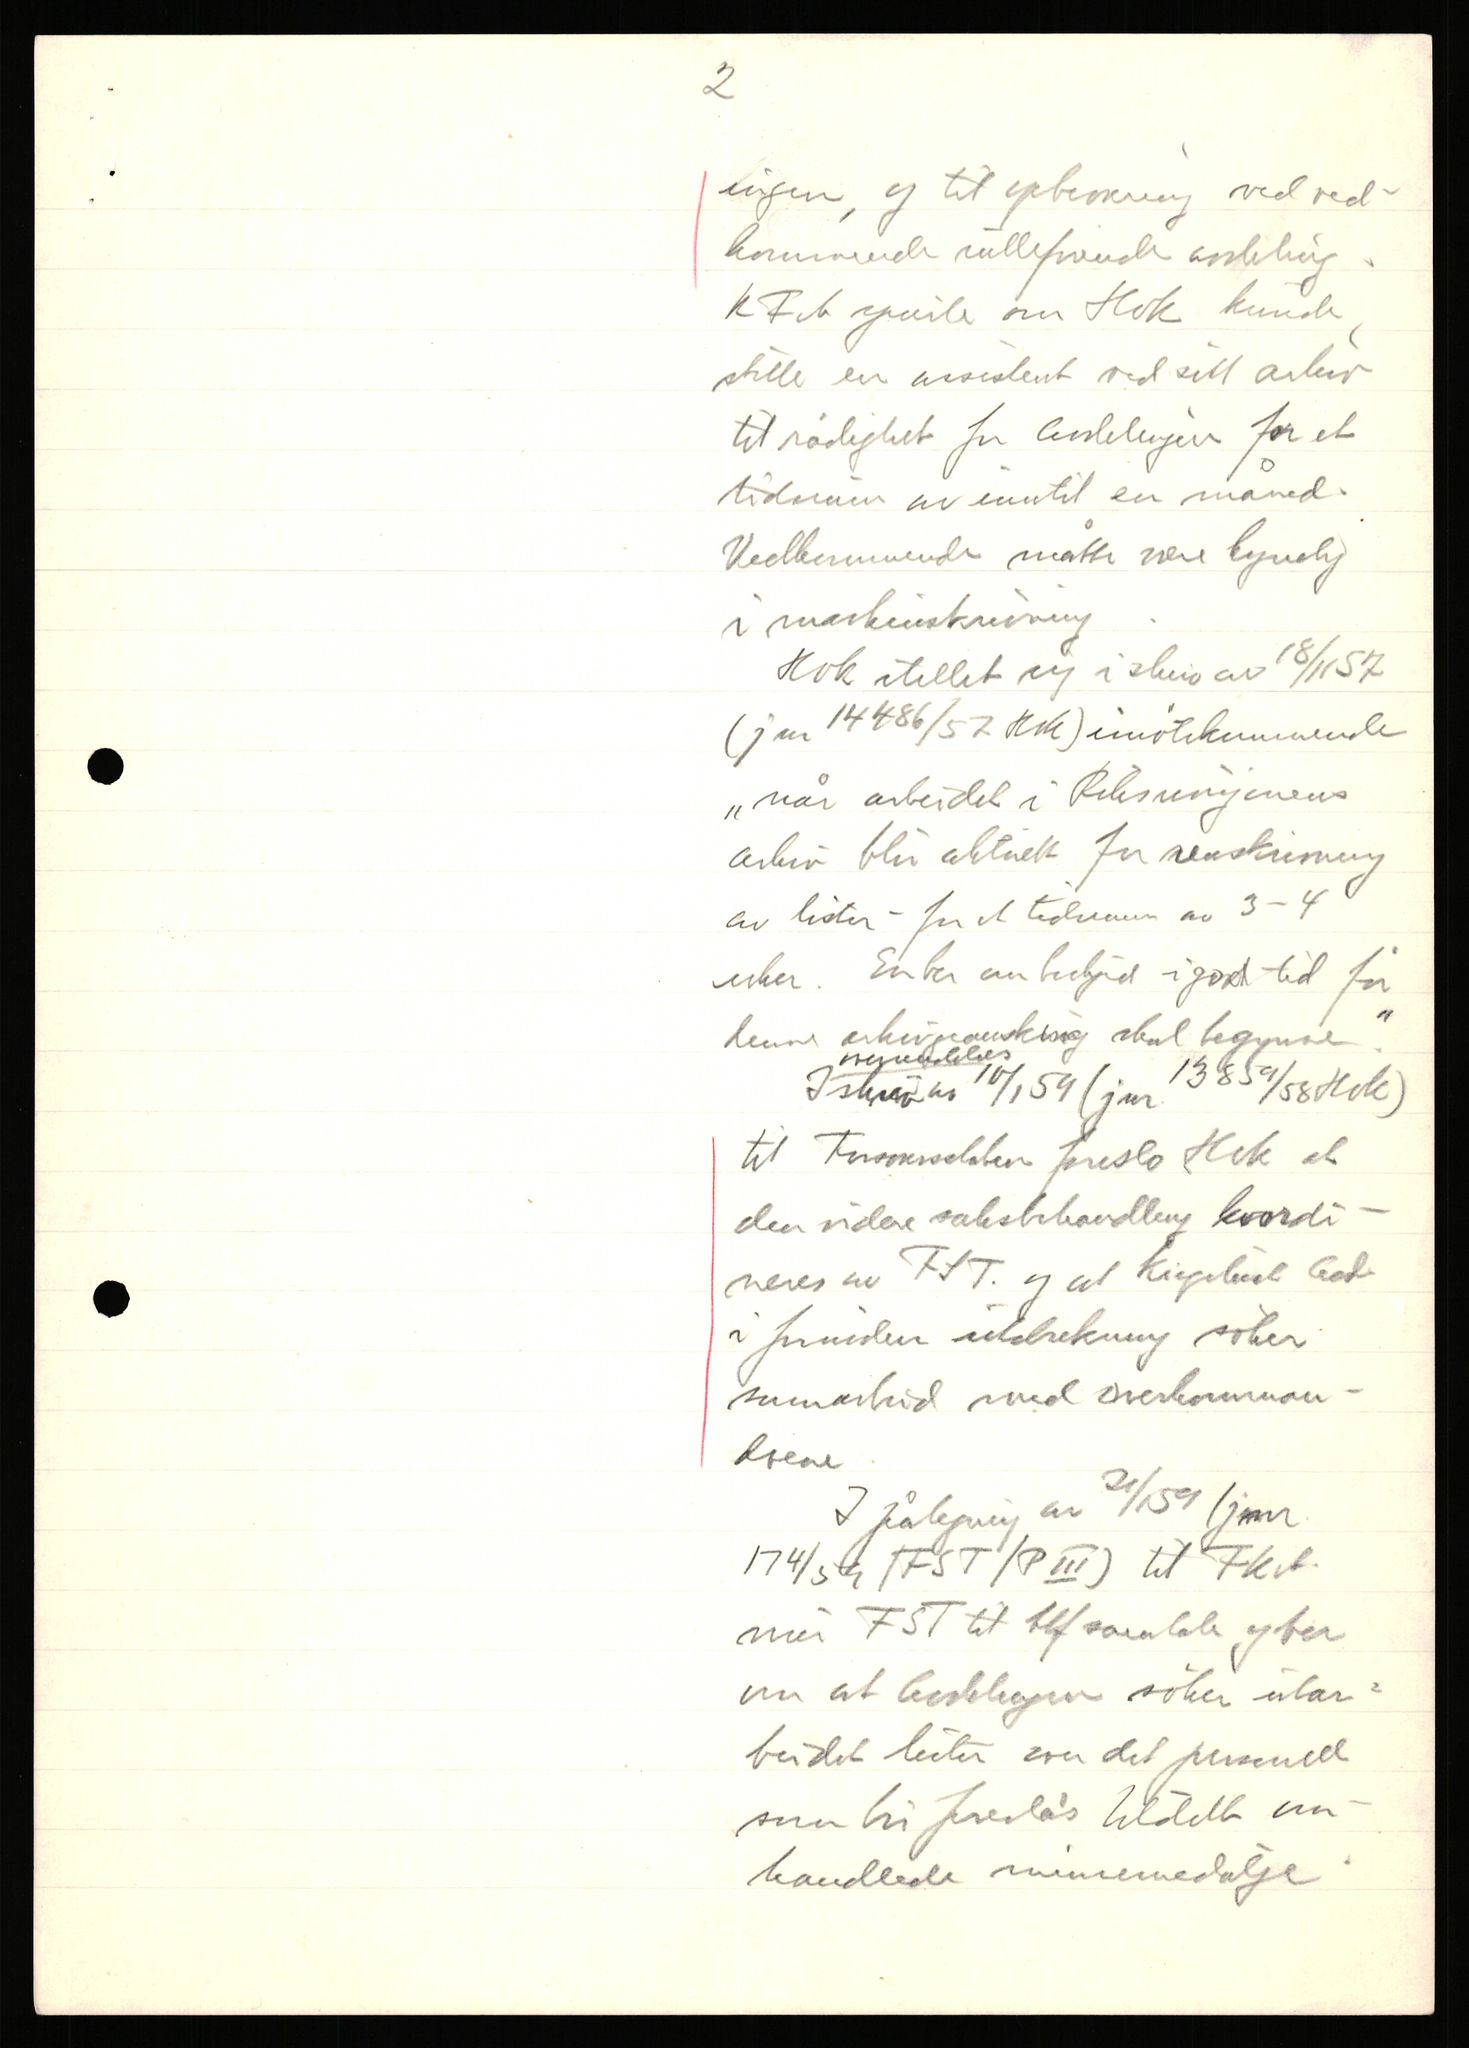 2
ingen, og til opbevaring ved ved-
kommende rulleførende avdeling.
KFA spurte om HOK kunde
stille en assistent ved sitt arkiv
til rådighet for Avdelingen for et
tidsrum av inntil en måned.
Vedkommende måtte være kyndig
i maskinskrivning.
HOK stillet sig i skriv av 18/11 57
(jnr 14486/57 HOK) imøtekommende
„når arbeidet i Riksunionens
arkiv blir aktuelt for renskrivning
av lister - for et tidsrum av 3-4
uker. En ber om beskjed i god tid før
denne arkivgranskning skal begynne."
I skriv av 10/1 59 (jnr 13859/58 HOK)
til Forsvarsdebten foreslo HOK at
den videre saksbehandling koordi-
neres av FST. og at Krigshist Avd
i forniden utstrekning søker
samarbeid med overkomman-
doene.
I påtegning av 21/1 59 (jnr
174/59 FST/P III) til FKA.
viser FST til tlf samtale og ber
om at Avdelingen søker utar-
beidet lister over det personell
som bør foreslås tildelt om-
handlede minnemedalje.